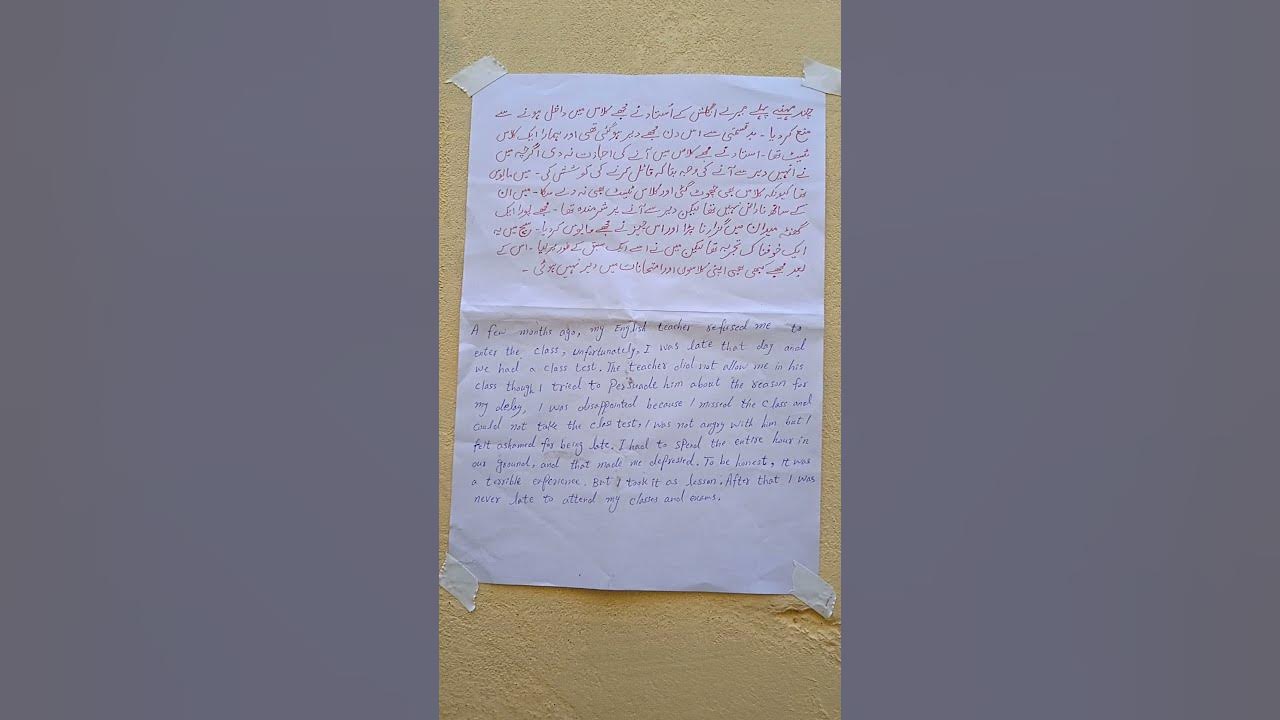 چند مہینے پہلے میرے انگلش کے اُستاد نے مجھے کلاس میں داخل ہونے سے
منع کر دیا ۔ بدقسمتی سے اس دن مجھے دیر ہو گئی تھی اور ہمارا ایک کلاس
ٹیسٹ تھا ۔ استاد نے مجھے کلاس میں آنے کی اجازت نہ دی اگرچہ میں
نے انہیں دیر سے آنے کی وجہ بتا کہ قائل کرنے کی کوشش کی ۔ میں مایوس
تھا کیونکہ کلاس بھی چھوٹ گئی اور کلاس ٹیسٹ بھی نہ دے سکا ۔ میں ان
کے ساتھ ناراض نہیں تھا لیکن دیر سے آنے پر شرمندہ تھا ۔ مجھے پورا ایک
گھنٹہ میدان میں گزارنا پڑا اور اس چیز نے مجھے مایوس کر دیا ۔ سچ میں یہ
ایک خوفناک تجربہ تھا لیکن میں نے اسے ایک سبق کے طور پر لیا ۔ اس کے
بعد مجھے کبھی بھی اپنی کلاسوں اور امتحانات میں دیر نہیں ہوئی ۔
A few months ago, my English teacher refused me to
enter the class, unfortunately, I was late that day and
we had a class test. The teacher did not allow me in his
class though I tried to Persuade him about the reason for
my delay, I was disappointed because I missed the class and
could not take the clas test, I was not angry with him but I
felt ashamed for being late. I had to spend the entire hour in
our ground, and that made me depressed. To be honest, it was
a terrible experience. But I took it as lesson. After that I was
never late to attend my classes and exams.